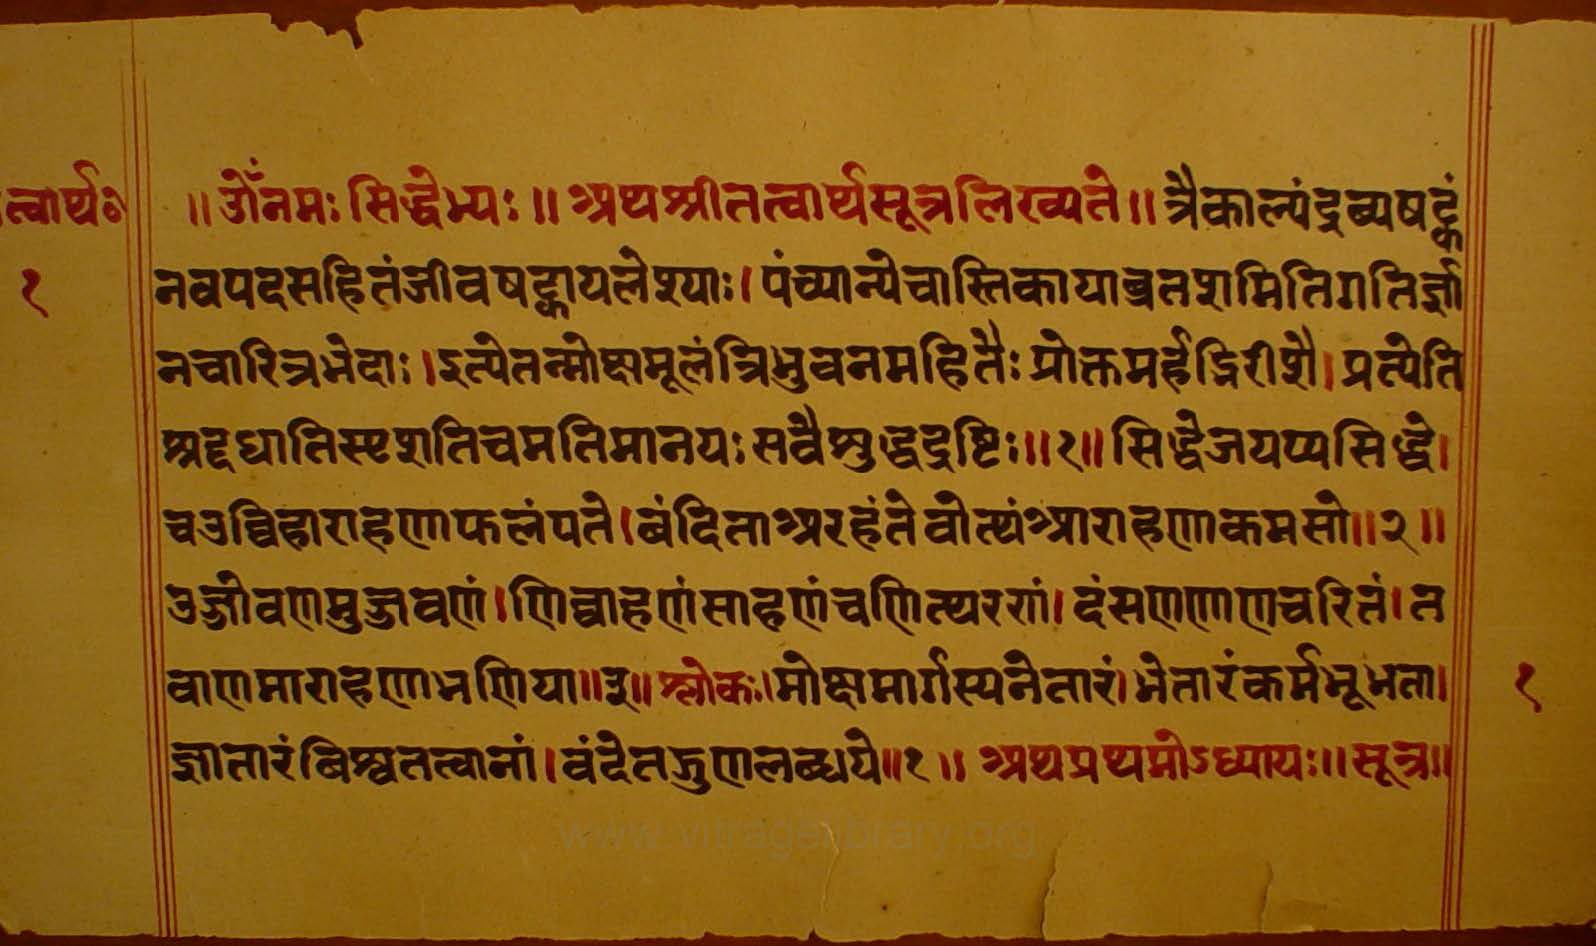 त्वार्थ०
१
॥ ॐ नमः सिद्धेभ्यः ॥ अथश्रीतत्वार्थसूत्रलिख्यते ॥ त्रैकाल्यंद्रव्यषट्कं
नवपदसहितंजीवषट्कायलेश्याः। पंच्यान्येचास्तिकायाव्रतशमितिगतिर्ज्ञा
नचारित्रभेदाः।इत्येतन्मोक्षमूलंत्रिभुवनमहितैः प्रोक्तमर्हद्भिरीशै। प्रत्येति
श्रद्दधातिस्पृशतिचमतिमानयः सवैश्रुद्धद्रष्टिः॥१॥ सिद्धेजयप्यसिद्धे।
चउव्विहाराहणाफलंपते।बंदिताअरहंतेवोत्थंआराहणाकमसो॥२॥
उज्जोवणमुज्जवणं।णिव्वाहणंसाहणंचणित्थरणं। दंसणणाणचरितं।त
वाणमाराहणाभणिया॥३॥ श्लोकः।मोक्षमार्गस्यनेतारं।भेतारंकर्मभूभता।
ज्ञातारंबिश्वतत्वानां।वंदेतद्गुणलब्धये॥१॥ अथप्रथमोऽध्यायः॥सूत्र॥
१
www.vitragelibrary.org